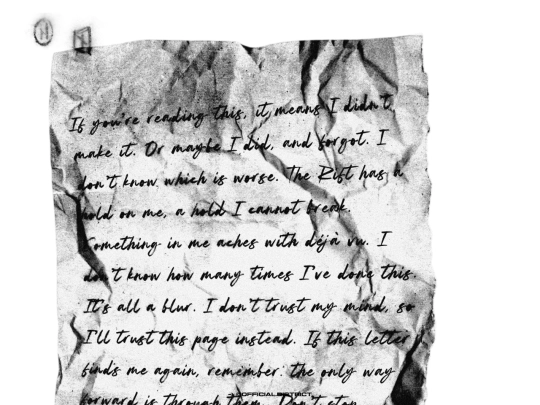 If you're reading this, it means I didn't
make it. Or maybe I did, and forgot. I
don't know which is worse. The Rift has a
hold on me, a hold I cannot break.
Something in me aches with déjà vu. I
don't know how many times I've done this.
It's all a blur. I don't trust my mind, so
I'll trust this page instead. If this letter
finds me again, remember: the only way
forward is through them. Don't stop